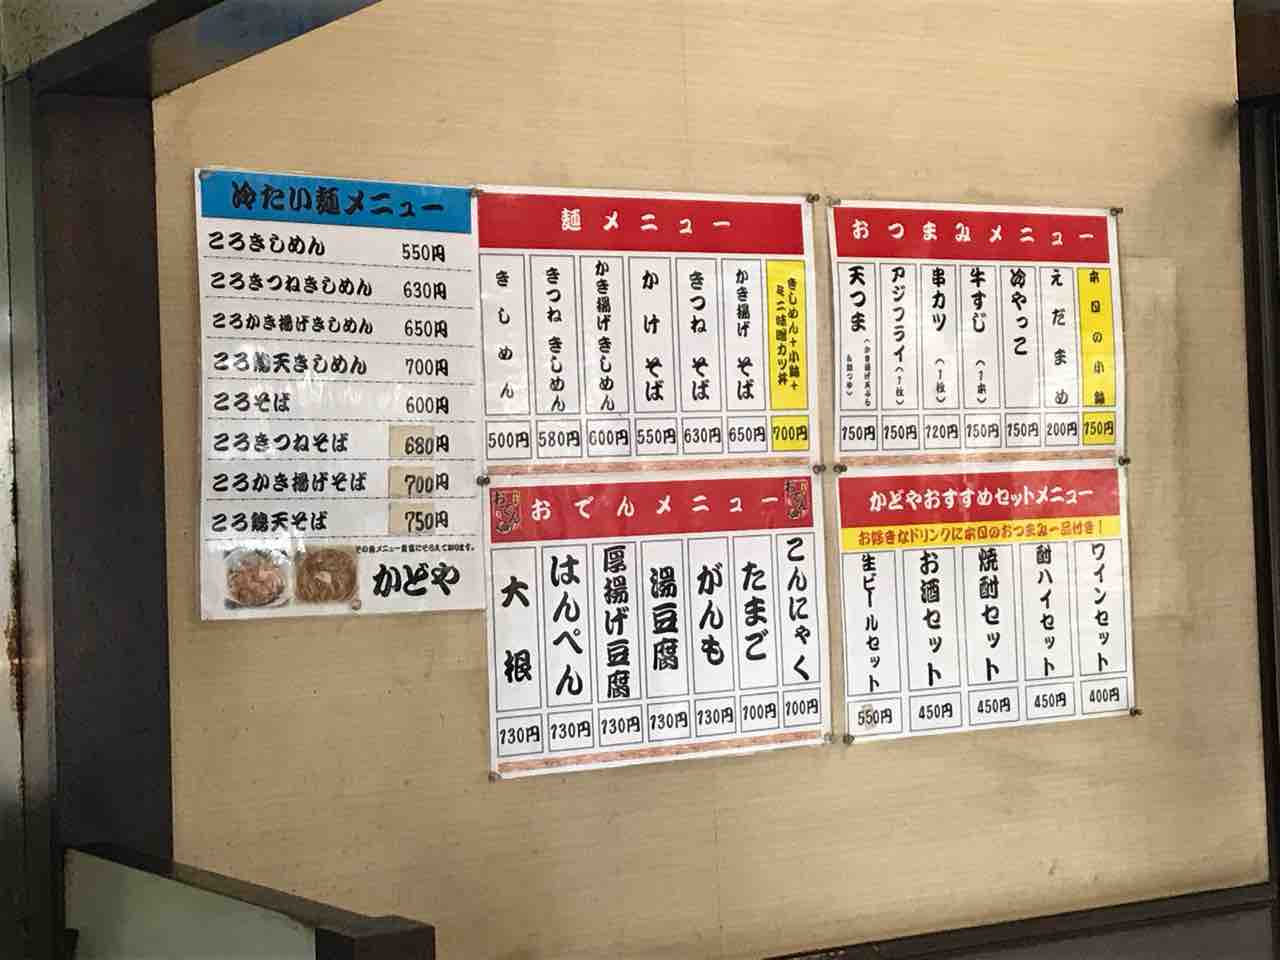 冷たい麺メニュー
ころきしめん 550円
ころきつねきしめん 630円
ころかき揚げきしめん 650円
ころ鶏天きしめん 700円
ころそば 600円
ころきつねそば 680円
ころかき揚げそば 700円
ころ鶏天そば 750円
その他メニュー豊富にそろえております。
かどや
麺メニュー
きしめん 500円
きつねきしめん 580円
かき揚げきしめん 600円
かけそば 550円
きつねそば 630円
かき揚げそば 650円
きしめん+小鉢+
ミニ味噌カツ丼 700円
おつまみメニュー
天つま (かき揚げ天ぷら 150円
アジフライ(1枚) 150円
串カツ (1枚) 120円
牛すじ (1本) 150円
冷やっこ 150円
えだまめ 200円
本日の小鉢 150円
おでん
おでんメニュー
大根 130円
はんぺん 130円
厚揚げ豆腐 130円
湯豆腐 130円
がんも 130円
たまご 100円
こんにゃく 100円
かどやおすすめセットメニュー
お好きなドリンクに本日のおつまみ一品付き!
生ビールセット 550円
お酒セット 450円
焼酎セット 450円
酎ハイセット 450円
ワインセット 400円